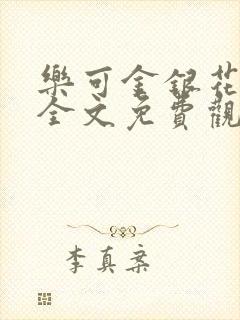 樂可金銀花
全文免費觀
李真案